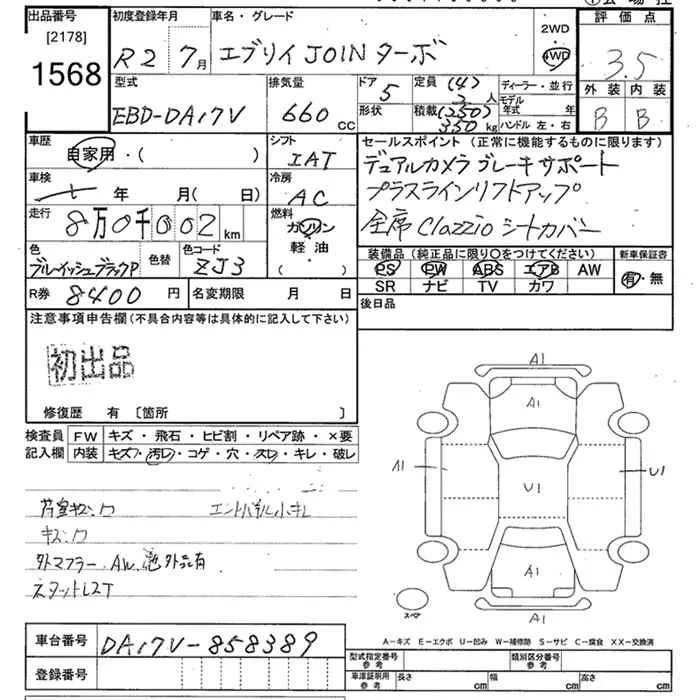 出品番号 初度登録年月 車名・グレード 2WD 評価点
[2178] R2 7月 エブリイ JOIN ターボ 4WD 3.5
1568
型式 排気量 ドア 定員 (4) 2人 ディーラー・並行 外装 内装
EBD-DA17V 660cc 5 形状 積載 (250) 350kg モデル年式 年 B B
ハンドル 左・右
車歴 シフト セールスポイント(正常に機能するものに限ります)
自家用・( ) IAT デュアルカメラ ブレーキサポート
車検 年 月( 日) 冷房 AC プラスラインリフトアップ
走行 8万0千002km 燃料 ガソリン 全席 Clazzio シートカバー
軽油
( )
色 色替 色コード 装備品(純正品に限り○をつけてください) 新車保証書
ブルーイッシュブラックP ZJ3 PS PW ABS エアB AW 有・無
SR ナビ TV カワ
R券 8400円 名変期限 月 日 後日品
注意事項申告欄(不具合内容等は具体的に記入して下さい)
初出品
修復歴 有 〔箇所 〕
検査員 FW キズ・飛石・ヒビ割・リペア跡・×要
記入欄 内装 キズ・汚レ・コゲ・穴・スレ・キレ・破レ
キズ
外マフラー AW 外品有
A1
A1
A1
U1
U1
A1
A1
スペア
A−キズ E−エクボ U−凹み W−補修跡 S−サビ C−腐食 XX−交換済
車台番号 DA17V-858389
登録番号
型式指定番号 参考 類別区分番号 参考
車庫証明用 参考 長さ cm 幅 cm 高さ cm